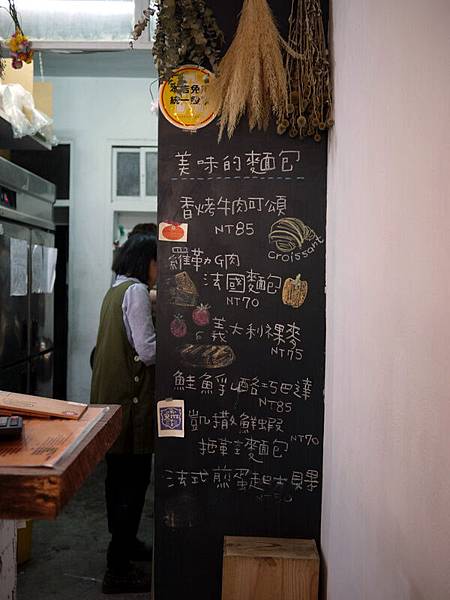 本店免用
統一發票
美味的麵包
香烤牛肉可頌
NT85
croissant
羅勒G肉
法國麵包
NT70
義大利裸麥
NT75
鮭魚乳酪巧巴達
NT85
凱撒鮮蝦
NT70
裸麥麵包
法式煎蛋起士貝果